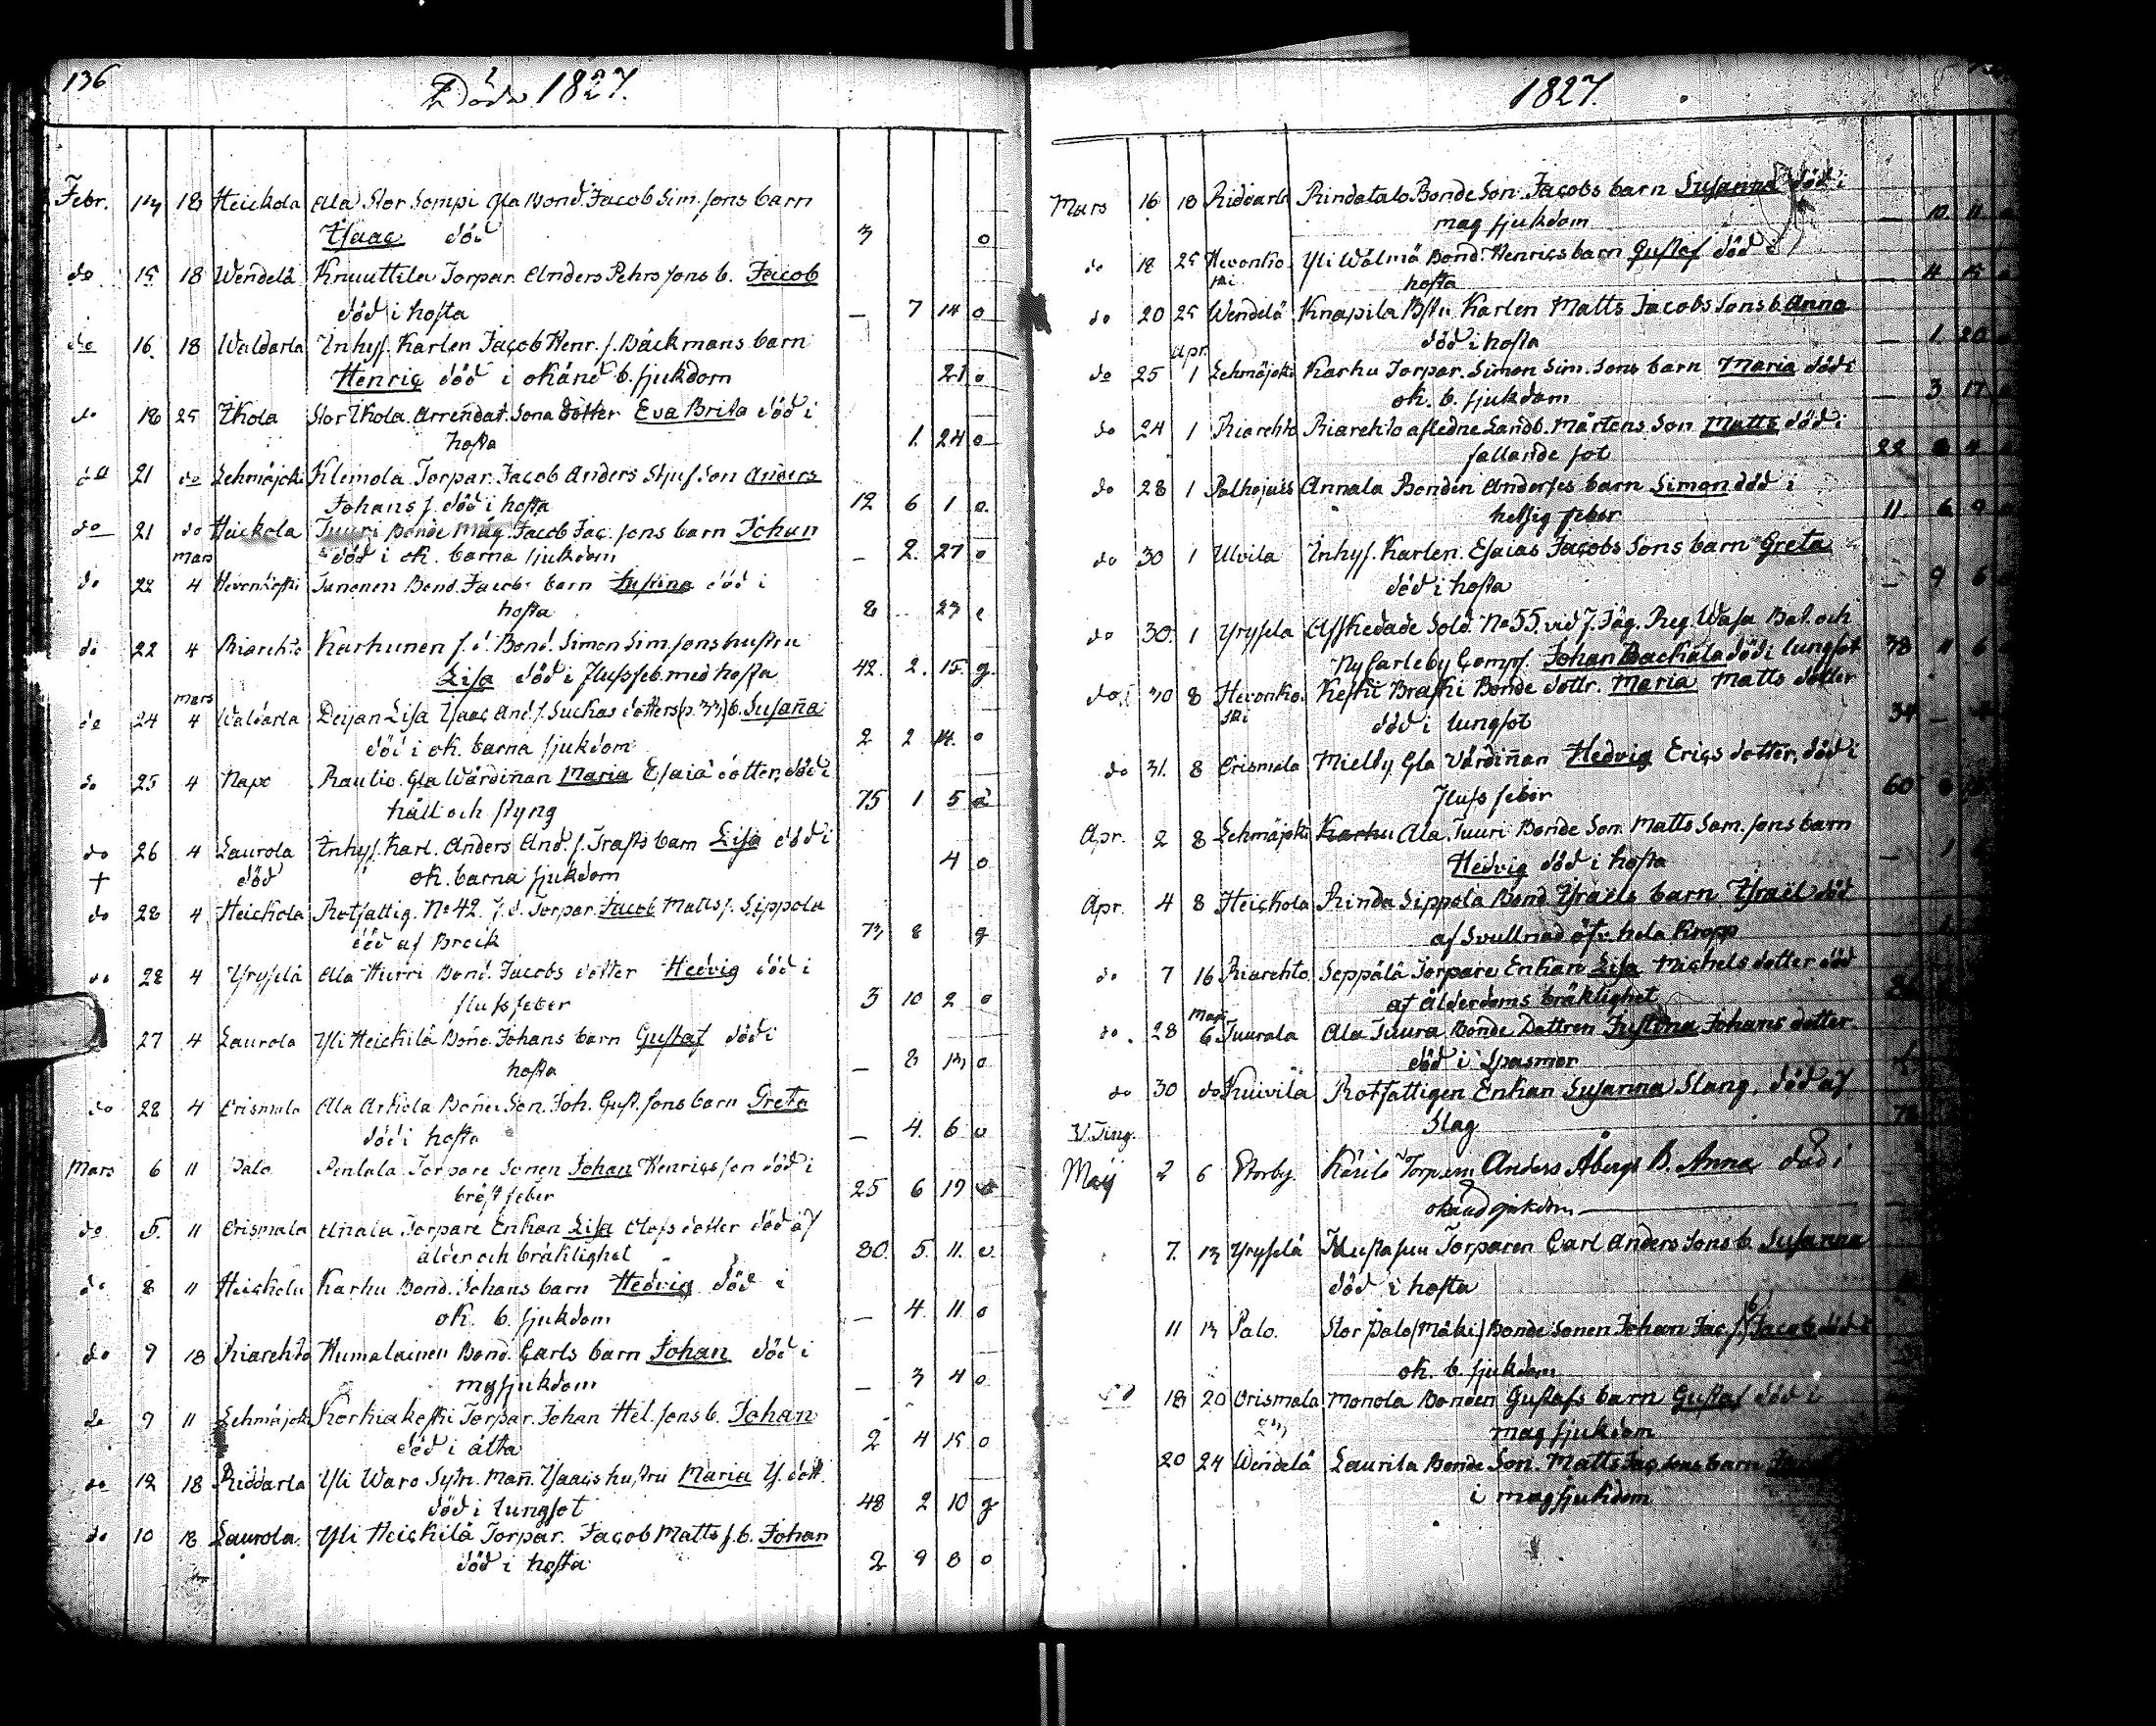 136
Döda 1827.
Febr. 14 18 Heickola Ala Stor Sompi gla Bond. Jacob Sim. sons barn
Isaac död 3 o
do 15 18 Wendelä Knuuttila Torpar. Anders Pehrs sons b. Jacob
död i hosta — 7 14 o
do 16 18 Waldarla Inhys. Karlen Jacob Henr. s. Bäckmans barn
Henric död i okänd b. sjukdom 21 o
do 18 25 Ikola Stor Ikola Arrendat. Sona dotter Eva Brita död i
hosta 1. 24 o
do 21 do Lehmäjoki Klemola Torpar. Jacob Anders Stjuf Son Anders
Johans s. död i hosta 12 6 1 o.
do 21 do Heickola Tuuri Bonde Måg. Jacob Jac. sons barn Johan
död i ok. barna sjukdom — 2. 27 o
Mars
do 22 4 Hevonkoski Bond. Jacobs barn Justina död i
hosta 8 23
do 22 4 Riarehto Karhunen f. d. Bond. Simon Sim. sons hustru
Lisa död i flussfeb. med hosta 42. 2. 15. g.
mars
do 24 4 Waldarla Deijan Lisa Isaac And. s. Luckas dotters (p. 33) b. Susaña
död i ok. barna sjukdom 2 2 14. o
do 25 4 Napo Rautio Gla Wärdiñan Maria Esaiæ dotter, död i
håll och styng 75 1 5
do 26 4 Laurola Inhys. Karl. Anders And. s. Trasts barn Lisa död i
† död ok. barna sjukdom 4 o
do 28 4 Heickola Rotfattig. No 42. f. d. Torpar. Jacob Matts s. Sippola
död af Bråck 73 8 g
do 28 4 Yryselä Ala Hurri Bond. Jacobs dotter Hedvig död i
flussfeber 3 10 2 o
27 4 Laurola Yli Heickilä Bond. Johans barn Gustaf död i
hosta — 8 13 o
do 28 4 Orismala Ala Arkola Bonde Son. Joh. Gust. sons barn Greta
död i hosta — 4. 6 o
Mars 6 11 Palo Pentala Torpare Sonen Johan Henricsson död i
bröstfeber 25 6 19
do 5. 11 Orismala Añala Torpare Enkan Lisa Olofs dotter död af
ålder och bräklighet 80. 5. 11. o.
do 8 11 Heickola Karhu Bond. Johans barn Hedvig död i
ok. b. sjukdom — 4. 11 o
do 9 18 Riarehto Humalainen Bond. Carls barn Johan död i
mgsjukdom — 3 4 o
do 9 11 Lehmäjoki Korkiakoski Torpar. Johan Hel. sons b. Johan
död i åtta 2 4 15 o
do 12 18 Riddarla Yli Waro Sytn. Mañ. Isaacs hustru Maria Is. dott.
död i lungsot 48 2 10 g
do 10 18 Laurola Yli Heickilä Torpar. Jacob Matts s. b. Johan
död i hosta 2 9 8 o
1827.
Mars 16 18 Riddarla Rindatalo Bonde Son. Jacobs barn Susanna död i
magsjukdom — 10 11
do 18 25 Hevonkoski Yli Wälmä Bond. Henrics barn Gustaf död i
hosta — 4 15
do 20 25 Wendelä Knapila Bstu Karlen Matts Jacobs Sons b. Anna
död i hosta — 1. 20
Apr.
do 25 1 Lehmäjoki Karhu Torpar. Simon Sim. Sons barn Maria död i
ok. b. sjukdom — 3 17
do 24 1 Riarehto Riarehto afledne Landb. Mårtens Son Matts död i
fallande sot 22 4
do 28 1 Palhojais Annala Bonden Anderses barn Simon död i
hetsig feber 11. 6 9
do 30 1 Ulvila Inhys. Karlen. Esaias Jacobs Sons barn Greta
död i hosta — 9 6
do 30. 1 Yryselä Afskedade Sold. No 55. vid f. Jäg. Reg. Wasa Bat. och
Nycarleby Comp. Johan Backala död i lungsot 38 11 6
do 30 8 Hevonkoski Keski Braski Bonde dottr. Maria Matts dotter
död i lungsot 34 —
do 31. 8 Orismala Mielty Gla Värdiñan Hedvig Erics dotter, död i
flussfeber 60
Apr. 2 8 Lehmäjoki Karhu Ala Tuuri Bonde Son. Matts Sam. sons barn
Hedvig död i hosta — 1
Apr. 4 8 Heickola Rinda Sippola Bond. Israels barn Israel död
af Svullnad öfv. hela Kropp
do 7 16 Riarehto Seppälä Torpare Enkan Lisa Michels dotter död
af ålderdoms bräklighet
Maji
do 28 6 Tuurala Ala Tuura Bonde Dottren Justina Johans dotter
död i Spasmer
do 30 do Kuivila Rotfattigen Enkan Susanna Slang, död af
Slag
V. Ting.
Maij 2 6 Storby. Torparen Anders Åbergs B. Anna död i
okänd sjukdom —
7. 13 Yryselä Torparen Carl Anders Sons b. Susanna
död i hosta
11 13 Palo. Stor Palo (Mäki) Bonde Sonen Johan Jac. s. b Jacob död i
ok. b. sjukdom
18 20 Orismala Monola Bonden Gustafs barn Gustaf död i
magsjukdom
20 24 Wendelä Laurila Bonde Son. Matts Jac. sons barn
i magsjukdom